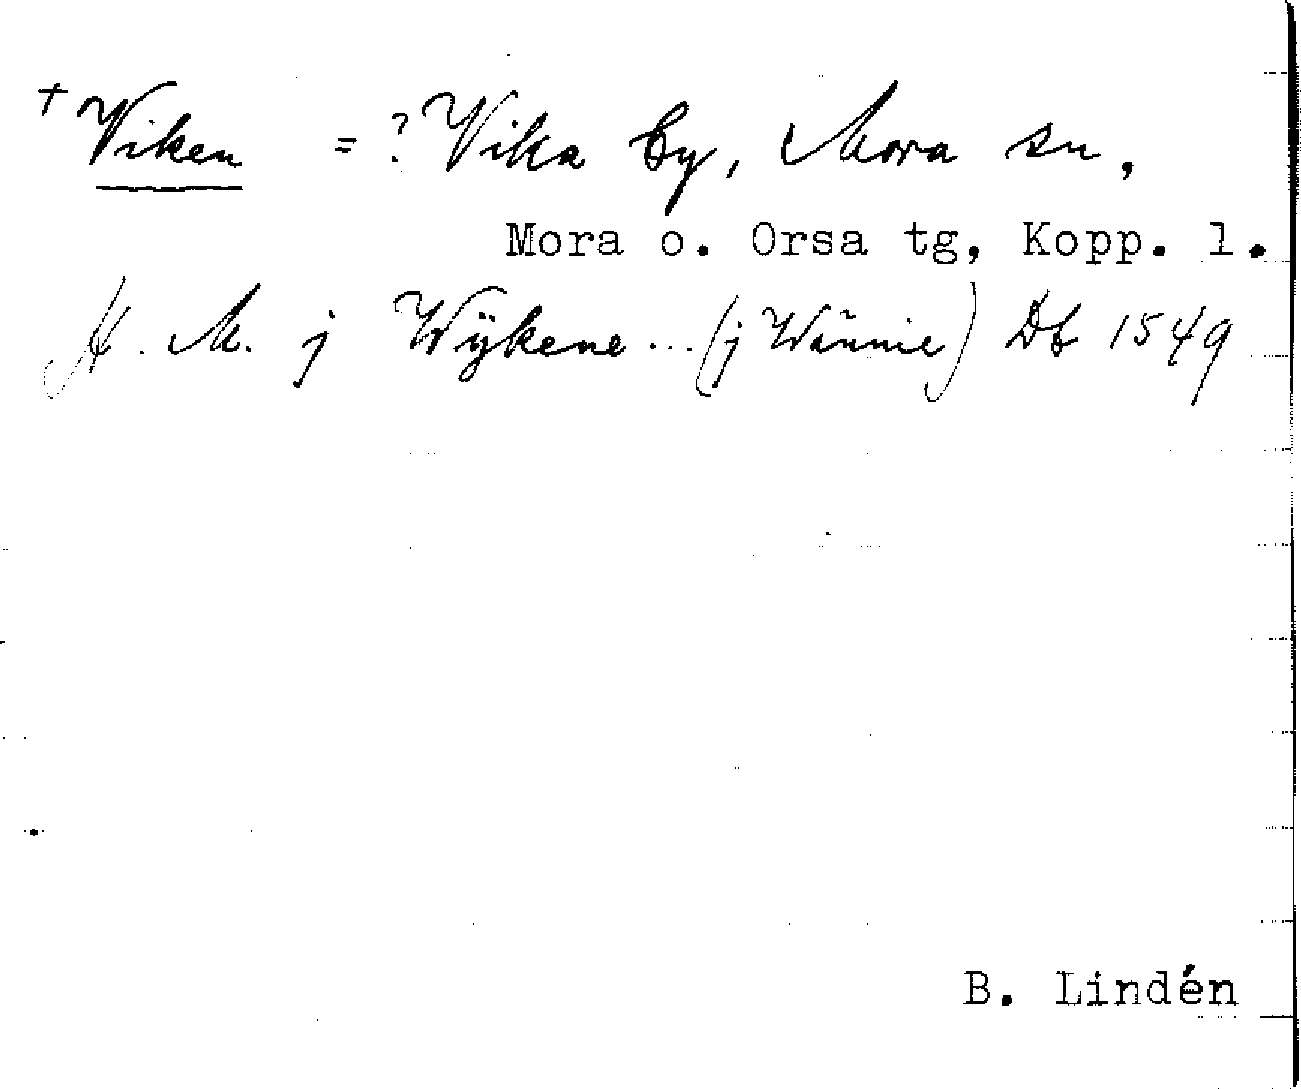 + Viken = ? Vika by, Mora sn,
Mora o. Orsa tg, Kopp. l.
H. M. j Wÿkene ... (j Wånnie) Db 1549
B. Lindén